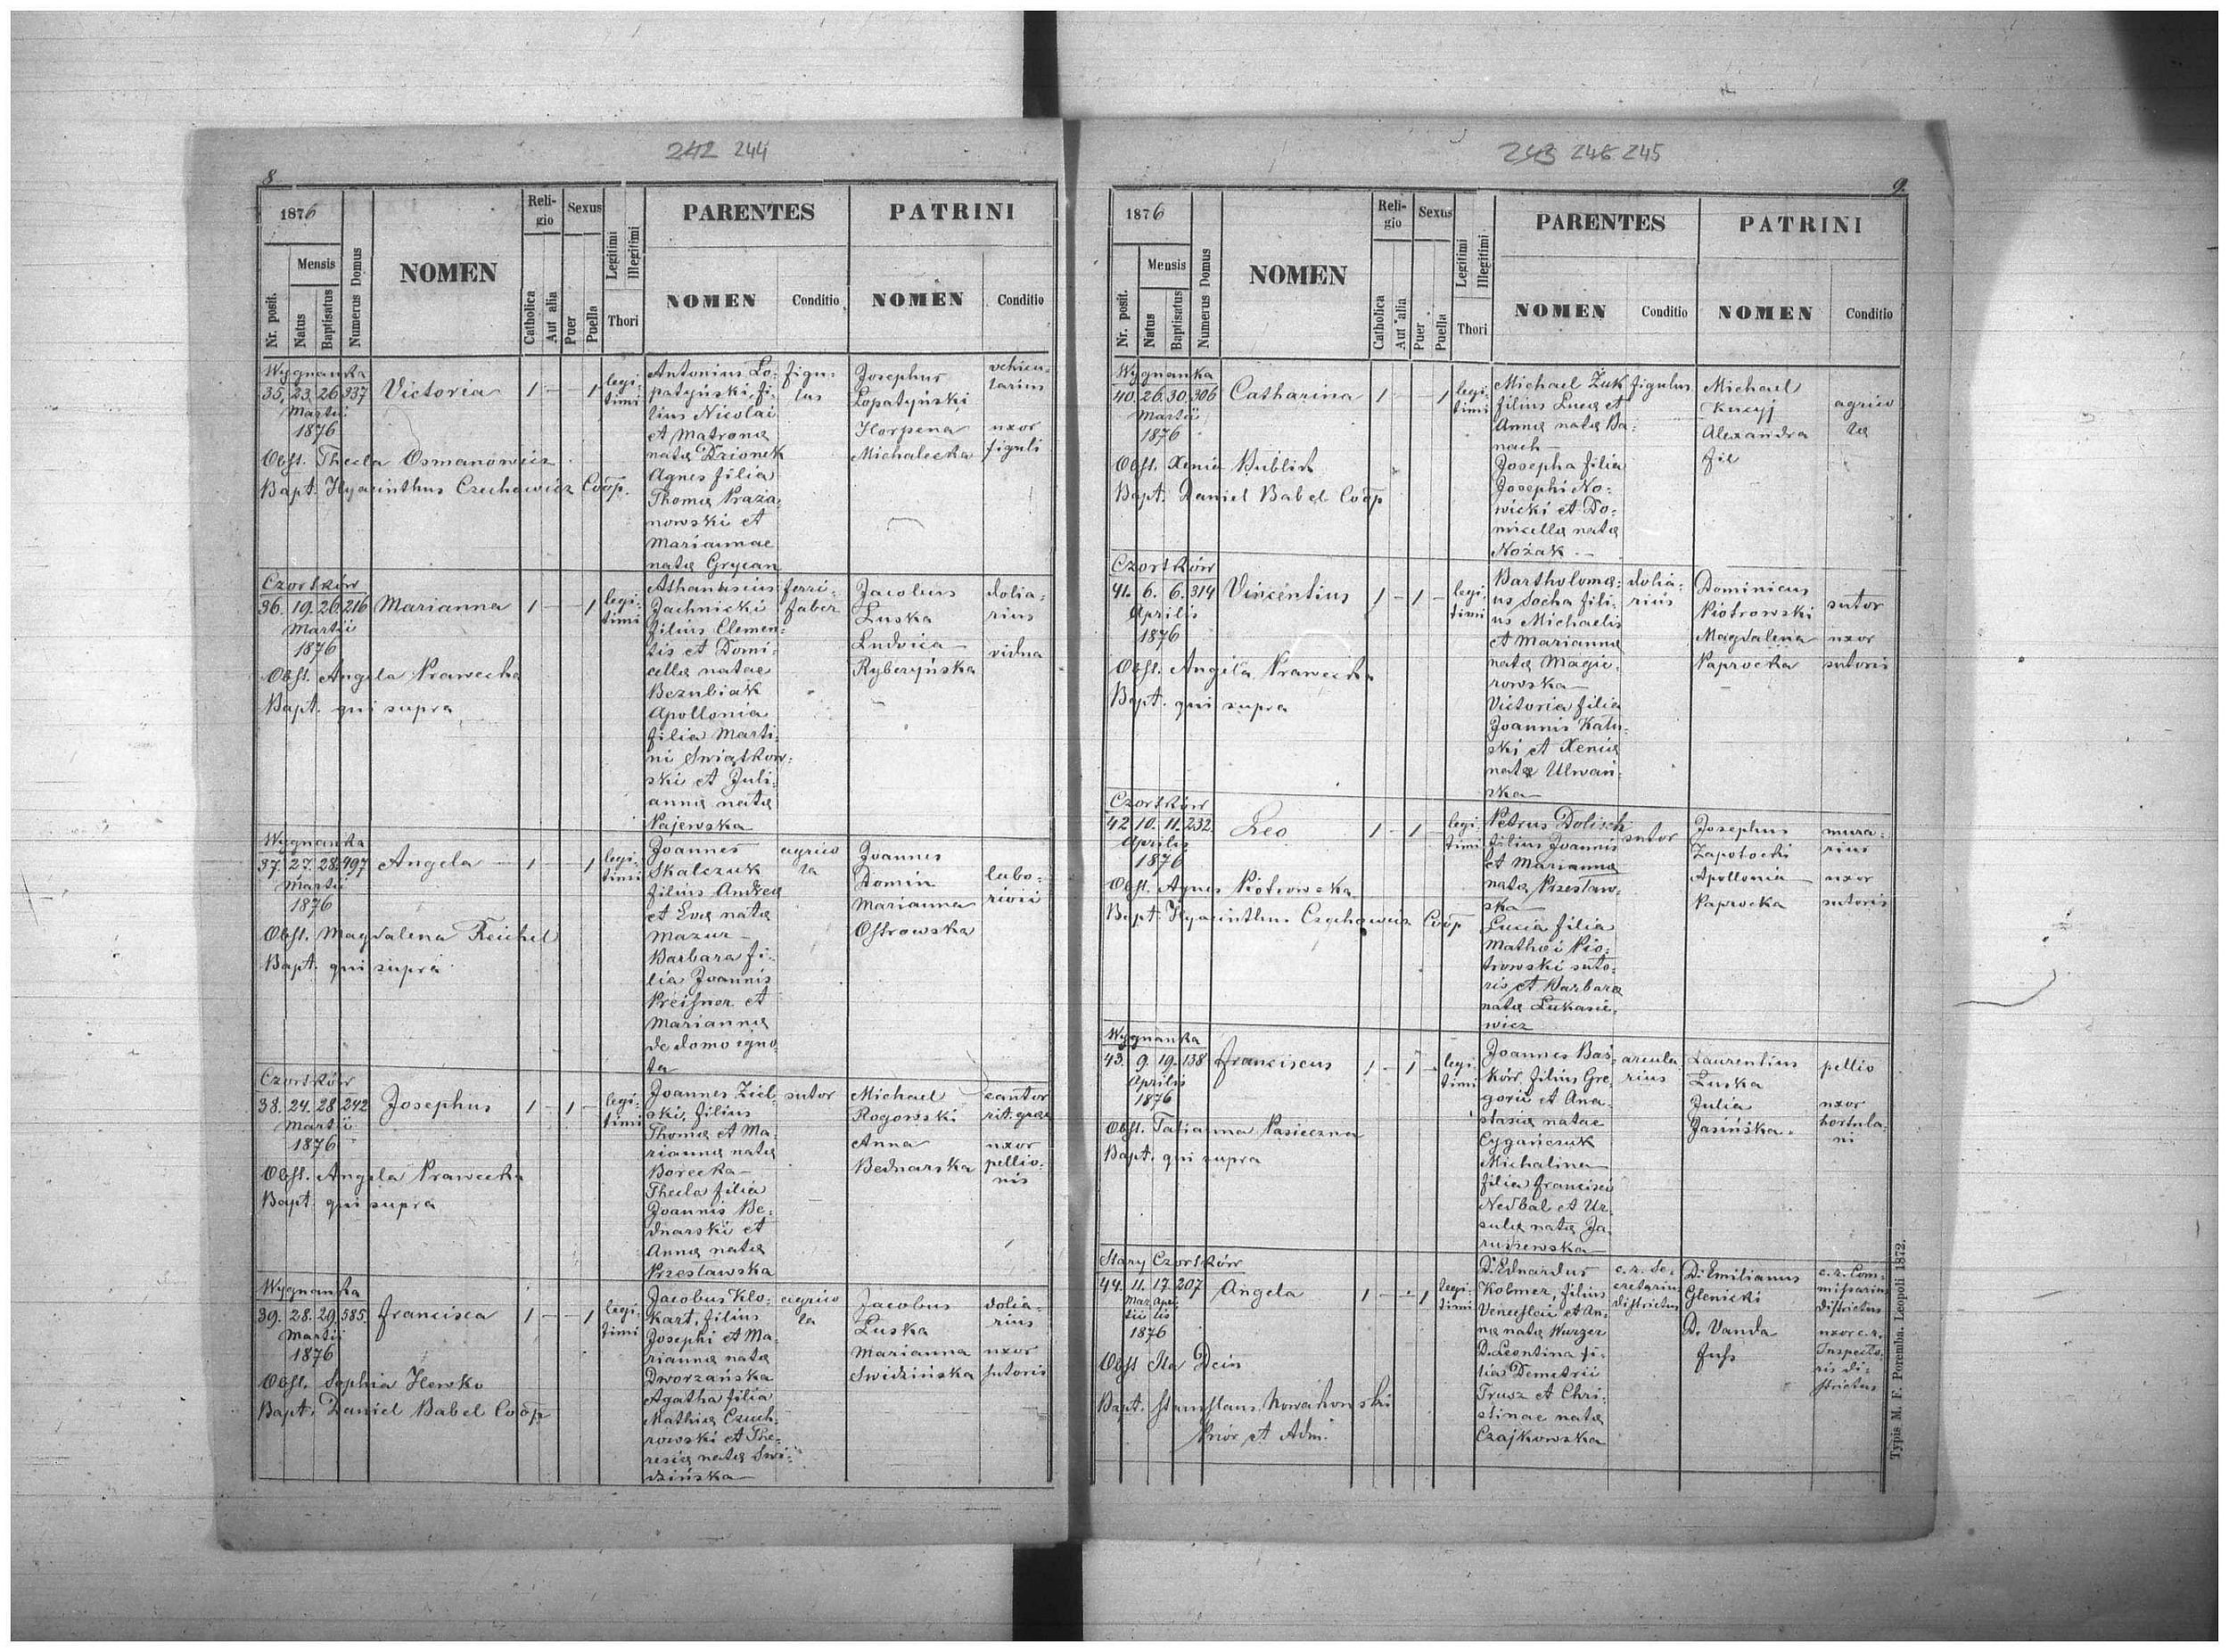 242 244
8
1876
Nr. posit.
Mensis
Natus
Baptisatus
Numerus Domus
NOMEN
Religio
Catholica
Aut alia
Sexus
Puer
Puella
Legitimi
Illegitimi
Thori
PARENTES
NOMEN
Conditio
PATRINI
NOMEN
Conditio
Wygnanka
35. 23. 26. 937 Victoria 1 - - 1 legi-
timi
Martii
1876
Obst. Thecla Osmanowicz
Bapt. Hyacinthus Czechowicz Coop.
Antonius Lo-
patyński, fi-
lius Nicolai
et Matronę
natę Dzionek
Agnes filia
Thomę Praża-
nowski et
Mariannae
natę Grycan
figu-
lus
Josephus
Łopatyński
Horpena
Michalecka
vehicu-
larius
uxor
figuli
Czortków
36. 19. 26. 216 Marianna 1 - - 1 legi-
timi
Martii
1876
Obst. Angela Prawecka
Bapt. qui supra
Athanasius
Jachnicki
filius Clemen-
tis et Domi-
cellę natae
Bezubiak
Apollonia
filia Marti-
ni Swiątkow-
ski et Juli-
annę natę
Pajewska
ferri-
faber
Jacobus
Łuska
Ludvica
Ryberyńska
dolia-
rius
vidua
Wygnanka
37. 27. 28. 497 Angela 1 - - 1 legi-
timi
Martii
1876
Obst. Magdalena Reichel
Bapt. qui supra
Joannes
Skalczuk
filius Andreę
et Evę natę
Mazur
Barbara fi-
lia Joannis
Preisner et
Mariannę
de domo igno-
ta
agrico
la
Joannes
Domin
Marianna
Ostrowska
labo-
riosi
Czortków
38. 24. 28. 242 Josephus 1 - 1 - legi-
timi
Martii
1876
Obst. Angela Prawecka
Bapt. qui supra
Joannes Ziel-
ski, filius
Thomę et Ma-
riannę natę
Borecka
Thecla filia
Joannis Be-
dnarski et
Annę natę
Przesławska
sutor
Michael
Rogowski
Anna
Bednarska
cantor
rit. gręc
uxor
pellio-
nis
Wygnanka
39. 28. 29. 585. Francisca 1 - - 1 legi-
timi
Martii
1876
Obst. Sophia Hewko
Bapt. Daniel Babel Coop
Jacobus Klo-
kart, filius
Josephi et Ma-
riannę natę
Dworzańska
Agatha filia
Mathię Czuch-
rowski et The-
resię natę Swi-
dzińska
agrico
la
Jacobus
Łuska
Marianna
Swidzińska
dolia-
rius
uxor
sutoris
243 246 245
9.
1876
Nr. posit.
Mensis
Natus
Baptisatus
Numerus Domus
NOMEN
Religio
Catholica
Aut alia
Sexus
Puer
Puella
Legitimi
Illegitimi
Thori
PARENTES
NOMEN
Conditio
PATRINI
NOMEN
Conditio
Wygnanka
40. 26. 30. 306 Catharina 1 - - 1 legi-
timi
Martii
1876
Obst. Xenia Bublich
Bapt. Daniel Babel Coop
Michael Żuk
filius Lucę et
Annę natę Ba-
nach
Josepha filia
Josephi No-
wicki et Do-
micellę natę
Nożak
figulus
Michael
Kucyj
Alexandra
fil
agrico
lę
Czortków
41. 6. 6. 314 Vincentius 1 - 1 - legi-
timi
Aprilis
1876
Obst. Angela Prawecka
Bapt. qui supra
Bartholomę-
us Socha fili-
us Michaelis
et Mariannę
natę Magie-
rowska
Victoria filia
Joannis Kału-
ski et Xenię
natę Ulwań-
ska
dolia-
rius
Dominicus
Piotrowski
Magdalena
Paprocka
sutor
uxor
sutoris
Czortków
42. 10. 11. 232 Leo 1 - 1 - legi-
timi
Aprilis
1876
Obst. Agnes Piotrowska
Bapt. Hyacinthus Czechowicz Coop
Petrus Dolisch
filius Joannis
et Mariannę
natę Przesław-
ska
Lucia filia
Mathęi Pio-
trowski suto-
ris et Barbarę
natę Łukasie-
wicz
sutor
Josephus
Zapotocki
Apollonia
Paprocka
mura-
rius
uxor
sutoris
Wygnanka
43. 9. 19. 138 Franciscus 1 - 1 - legi-
timi
Aprilis
1876
Obst. Tatianna Pasieczna
Bapt. qui supra
Joannes Baś-
ków, filius Gre-
gorii et Ana-
stasię natae
Cygańczuk
Michalina
filia Francisci
Nedbal et Ur-
sulę natę Ja-
ruszewska
arcula
rius
Laurentius
Łuska
Julia
Jasińska
pellio
uxor
hortula-
ni
Stary Czortków
44. 11. 17. 207 Angela 1 - - 1 legi-
timi
Mar Apri-
tii lis
1876
Obst Ita Dein
Bapt. Stanislaus Nowakowski
Prior et Adm.
D. Eduardus
Kolmer, filius
Venceslai et An-
nę natę Wurzer
D. Leontina fi-
lia Demetrii
Trusz et Chri-
stinae natę
Czajkowska
c.r. Se-
cretarius
districtus
D. Emilianus
Glenicki
D. Vanda
Fuhs
c.r. Com-
missarius
districtus
uxor c.r.
Inspecto-
ris di-
strictus
Typis M. F. Poremba. Leopoli 1872.